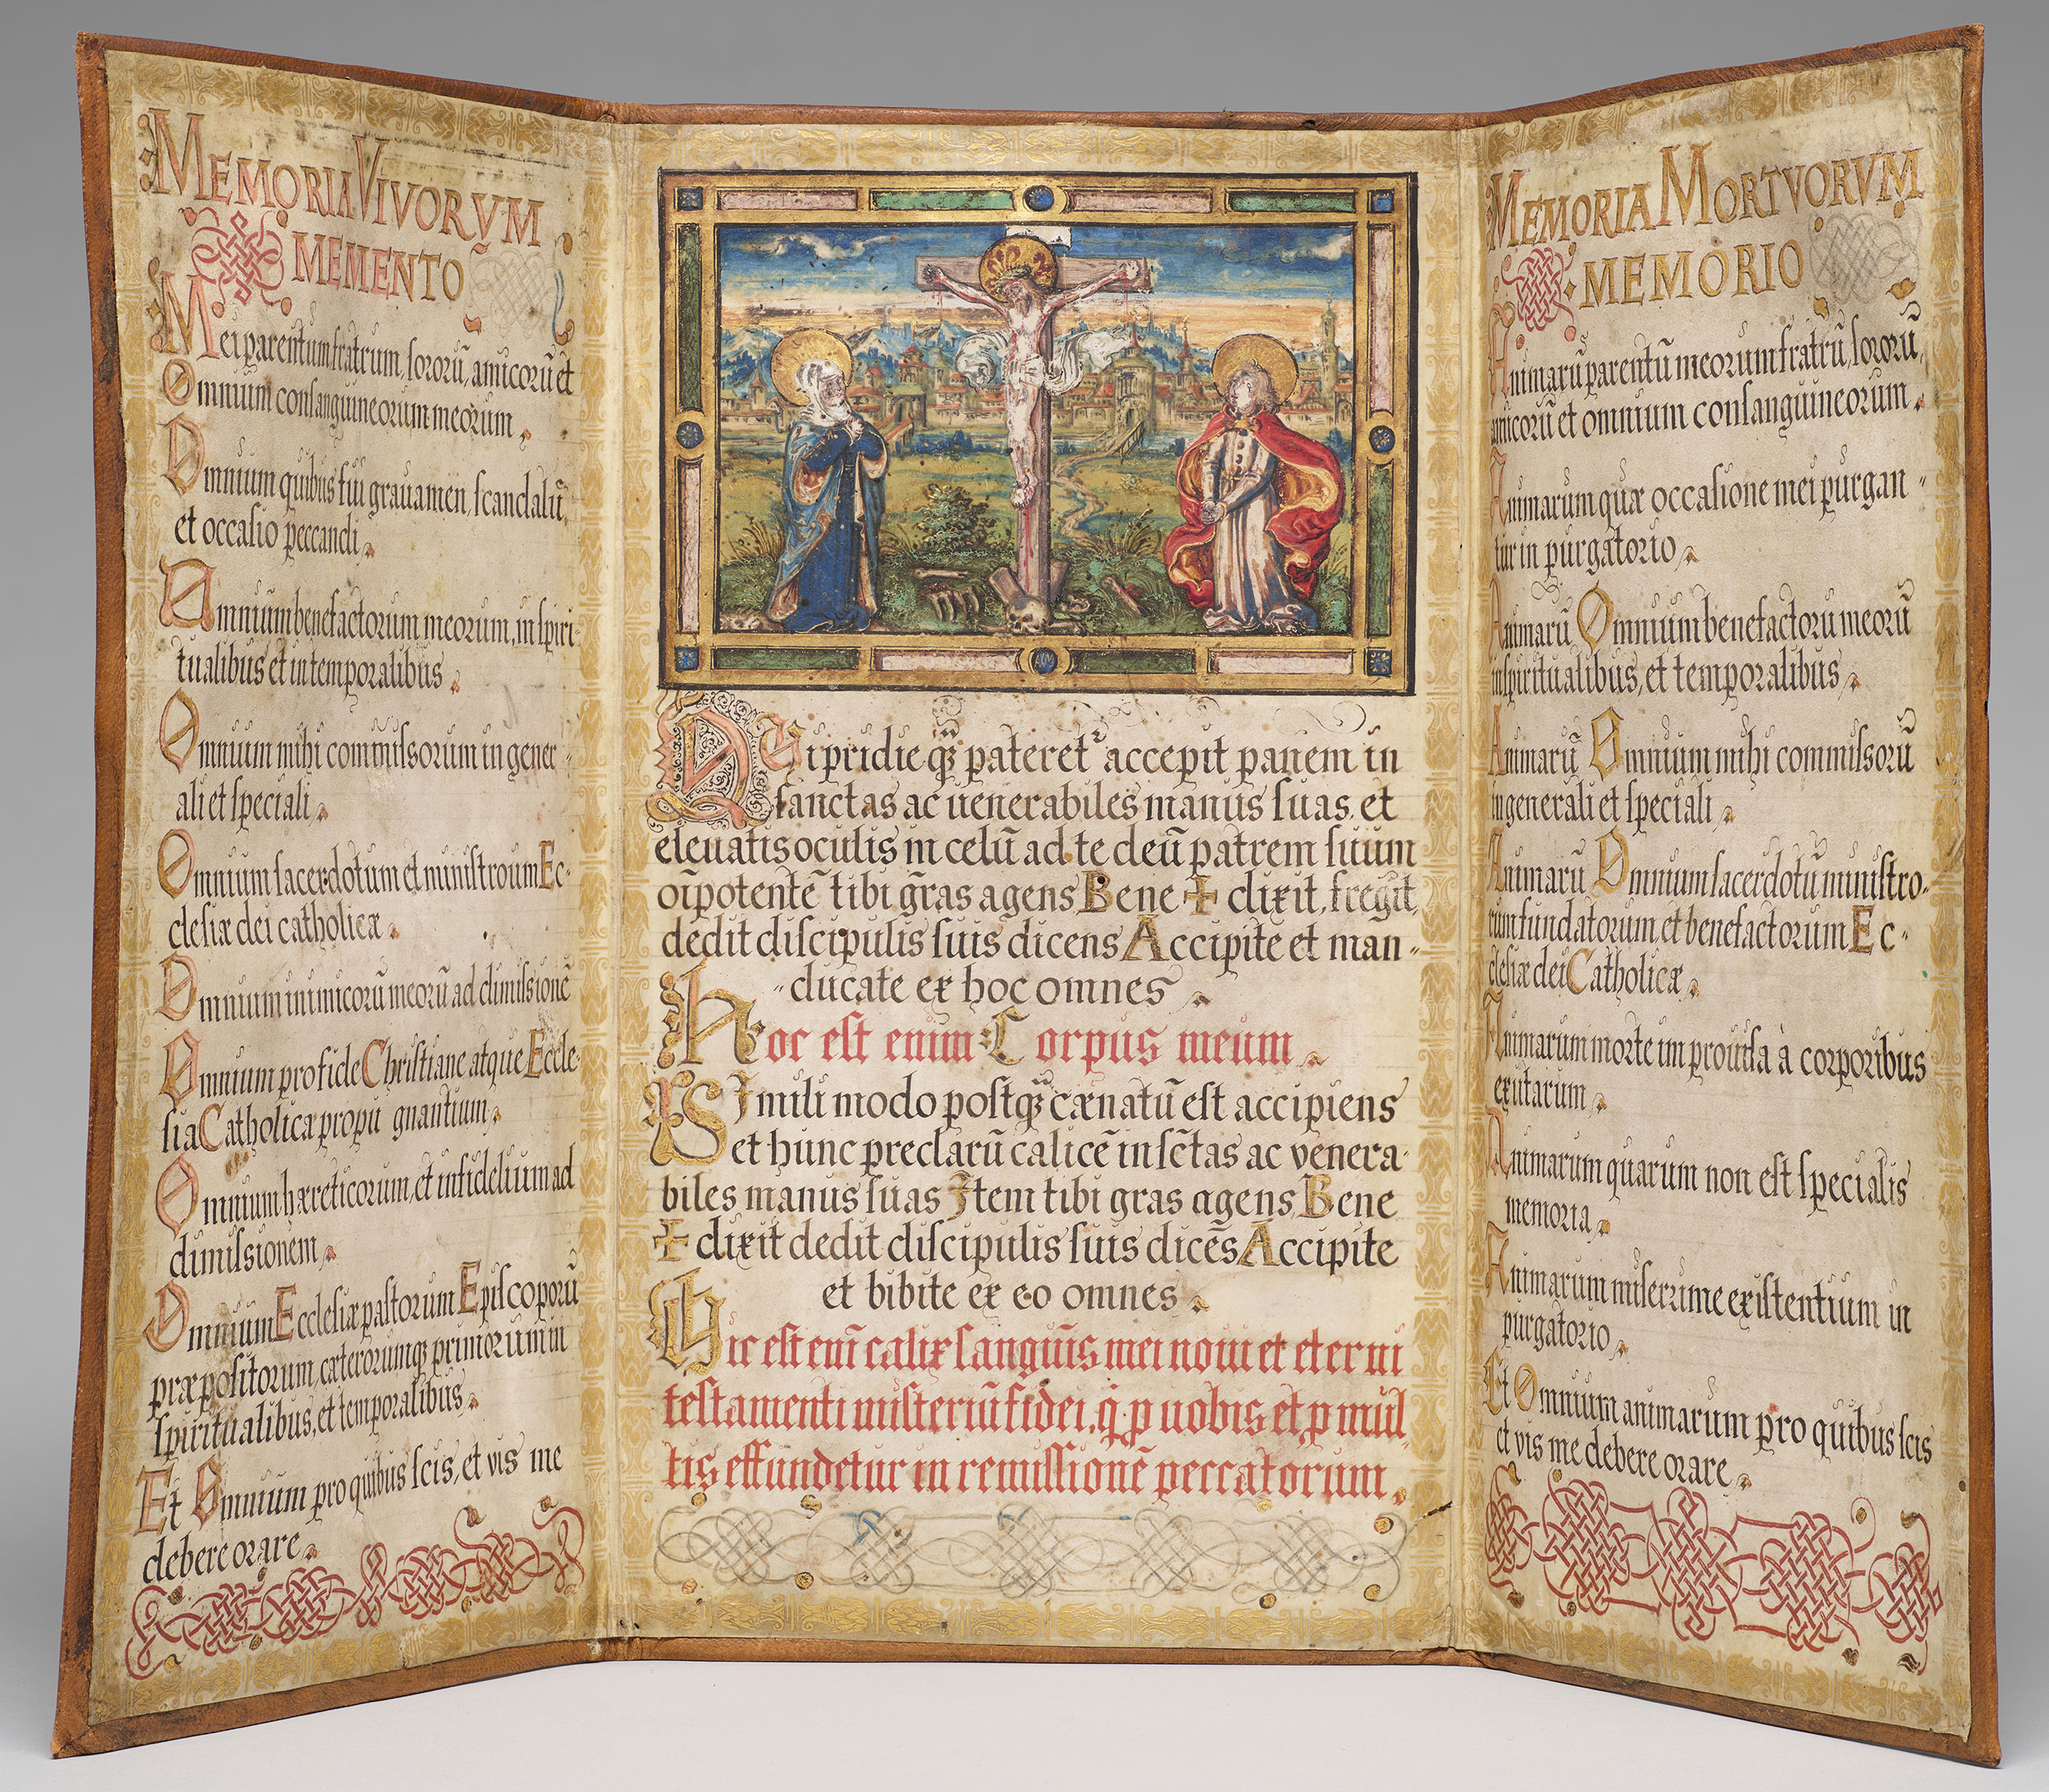 MEMORIA VIVORVM
MEMENTO
Mei parentum fratrum, sororū, amicorū et
Omnium consanguineorum meorum
Omnium quibus fui grauamen, scandalū,
et occasio peccandi
Omnium benefactorum meorum, in spiri-
tualibus et in temporalibus
Omnium mihi commissorum in gener-
ali et speciali
Omnium sacerdotum et ministroum Ec-
clesiæ dei catholicæ
Omnium inimicorū meorū ad dimissionē
Omnium pro fide Christiane atque Eccle-
sia Catholica propu gnantium
Omnium hæreticorum, et infidelium ad
dimissionem
Omnium Ecclesiæ pastorum Episcoporū
præpositorum, cæterorumq3 primorum in
spiritualibus, et temporalibus
Et Omnium pro quibus scis, et vis me
debere orare
Qui pridie q3 pateret accepit panem in
sanctas ac uenerabiles manus suas, et
eleuatis oculis in celū ad te deū patrem suum
oīpotentē tibi gr̄as agens Bene ✠ dixit, fregit,
dedit discipulis suis dicens Accipite et man-
-ducate ex hoc omnes
Hoc est enim Corpus meum
Simili modo postq3 cænatū est accipiens
et hunc preclarū calicē in sc̄tas ac venera-
biles manus suas Item tibi gras agens Bene
✠ dixit dedit discipulis suis dicēs Accipite
et bibite ex eo omnes
Hic est enī calix sanguīs mei noui et eterni
testamenti misteriū fidei, q̄ p uobis et p mul-
tis effundetur in remissionē peccatorum
MEMORIA MORTVORVM
MEMORIO
Animarū parentū meorum fratrū, sororū,
amicorū et omnium consanguineorum
Animarum quæ occasione mei purgan-
tur in purgatorio
Animarū Omnium benefactorū meorū
in spiritualibus, et temporalibus
Animarū Omnium mihi commissorū
in generali et speciali
Animarū Omnium sacerdotū ministro-
rum fundatorum, et benefactorum Ec-
clesiæ dei Catholicæ
Animarum morte improuisa à corporibus
exutarum
Animarum quarum non est specialis
memoria
Animarum miserrime existentium in
purgatorio
Et Omnium animarum pro quibus scis
et vis me debere orare